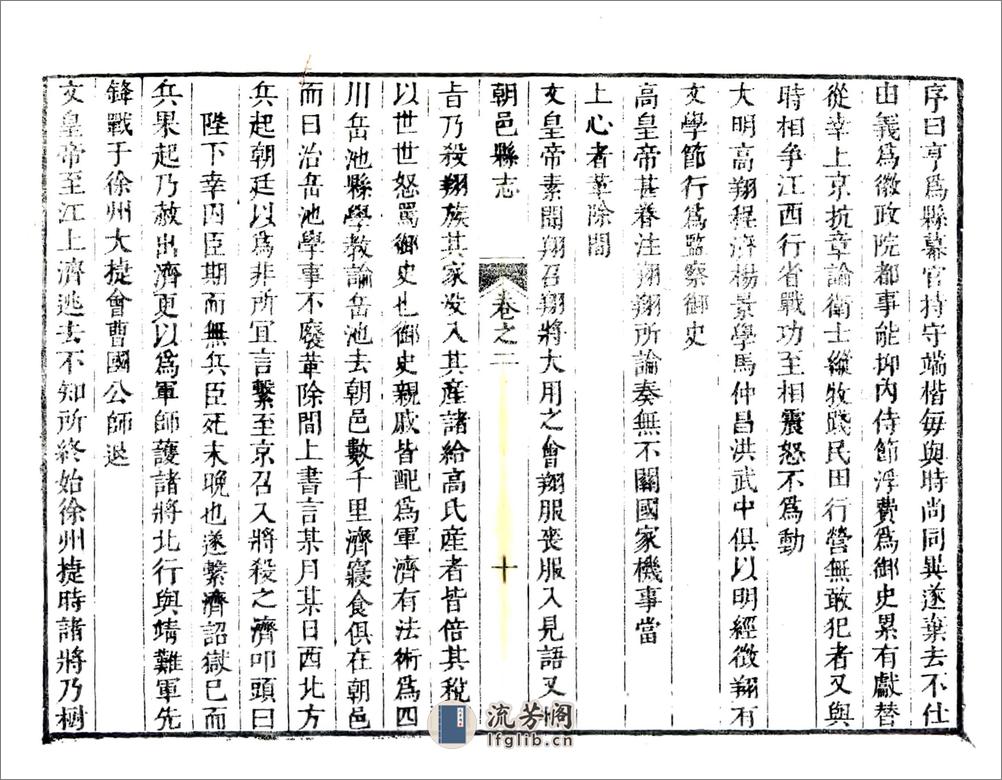 序曰亨爲縣幕官持守端楷每與時尚同異遂棄去不仕
由義爲徽政院都事能抑內侍節浮費爲御史累有獻替
從幸上京抗章論衛士縱牧踐民田行營無敢犯者又與
時相爭江西行省戰功至相震怒不爲動
大明高翔程濟楊景學馬仲昌洪武中俱以明經徵翔有
文學節行爲監察御史
高皇帝甚眷注翔翔所論奏無不關國家機事當
上心者革除間
文皇帝素聞翔召翔將大用之會翔服喪服入見語又
朝邑縣志
卷之二
十
旨乃殺翔族其家沒入其產諸給高氏產者皆倍其稅
以世世怒罵御史也御史親戚皆配爲軍濟有法術爲四
川岳池縣學教諭岳池去朝邑數千里濟寢食俱在朝邑
而曰治岳池學事不廢革除間上書言某月某日西北方
兵起朝廷以爲非所宜言繫至京召入將殺之濟叩頭曰
陛下幸囚臣期而無兵臣死未晚也遂繫濟詔獄已而
兵果起乃赦出濟更以爲軍師護諸將北行與靖難軍先
鋒戰于徐州大捷會曹國公師退
文皇帝至江上濟逃去不知所終始徐州捷時諸將乃樹
流芳阁
lfglib.cn